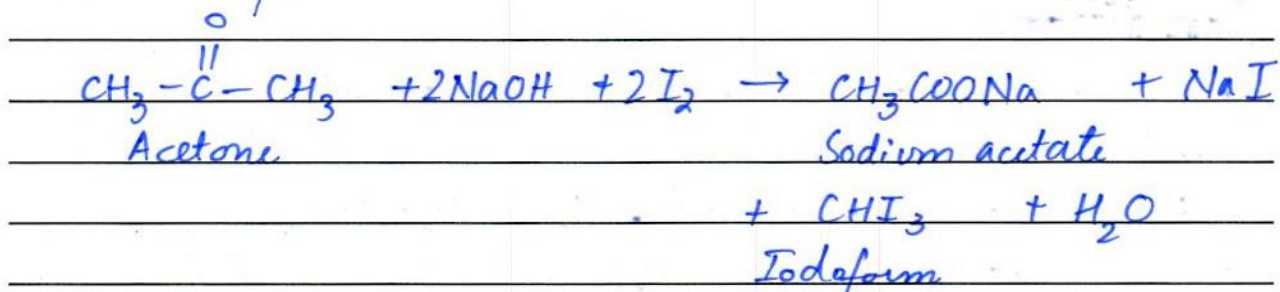 O
||
CH₃ - C - CH₃ + 2NaOH + 2I₂ → CH₃COONa + NaI
Acetone Sodium acetate
+ CHI₃ + H₂O
Iodoform